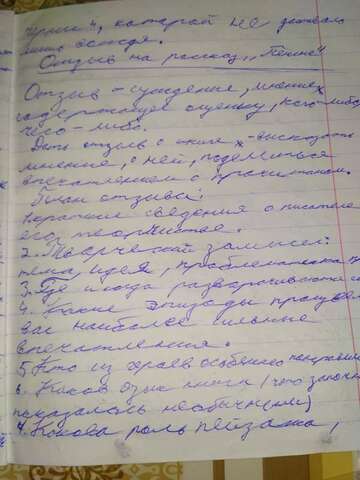 которой не
дождя.
Отзыв на рассказ „
Отзыв – суждение, мнение,
содержащее оценку, кого-либо
чего-либо.
Дать отзыв о книге – высказать
мнение, о ней, поделиться
впечатлением о прочитанном.
План отзыва:
1. Краткие сведения о писателе
его творчестве.
2. Творческий замысел:
тема, идея, проблематика
3. Где и когда разворачиваются
4. Какие эпизоды произвели
вас наиболее сильные
впечатления.
5. Кто из героев особенно понравился
6. Каков язык книги (что
показалось необычным)
7. Какова роль пейзажа,